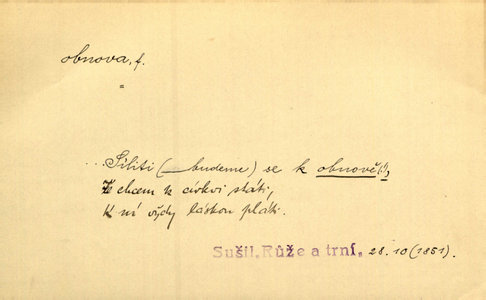 obnova, f.
"
... Síliti (— budeme) se k obnově(!),
Že chcem k církvi státi,
K ní vždy láskou pláti.
Sušil, Růže a trní, 28. 10 (1851).